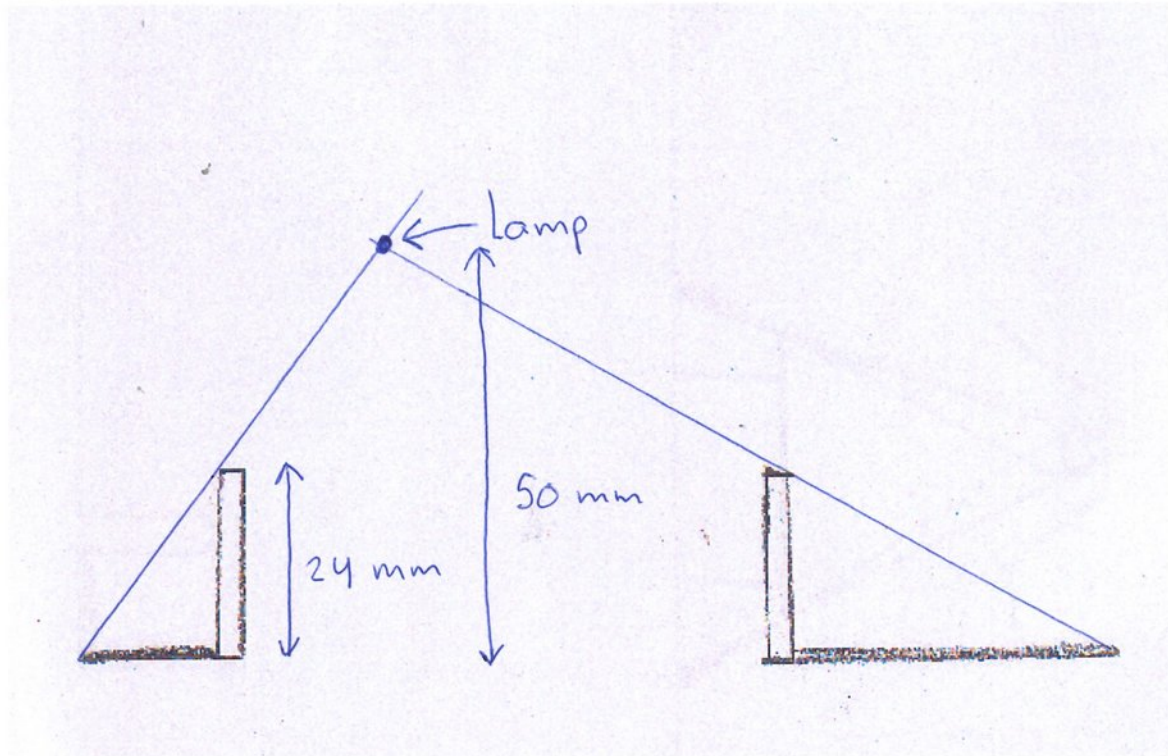 lamp
50 mm
24 mm